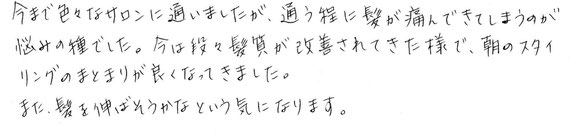 今まで色々なサロンに通いましたが、通う程に髪が痛んできてしまうのが
悩みの種でした。今は段々髪質が改善されてきた様で、朝のスタイ
リングのまとまりが良くなってきました。
また、髪を伸ばそうかなという気になります。